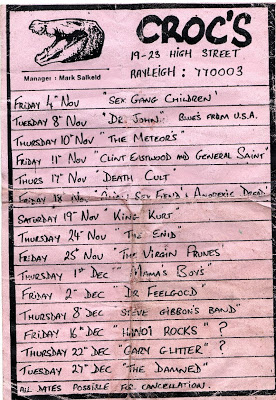 CROC'S
19-23 HIGH STREET
RAYLEIGH : 770003
Manager : Mark Salkeld
FRIDAY 4th NOV "SEX GANG CHILDREN'
TUESDAY 8th NOV "DR. JOHN: BLUES FROM U.S.A.
THURSDAY 10th NOV "THE METEOR'S
FRIDAY 11th NOV "CLINT EASTWOOD AND GENERAL SAINT"
THURS 17th NOV "DEATH CULT"
FRIDAY 18th NOV SEX FIEND'S ANOREXIC DREAD
SATURDAY 19th NOV "KING KURT"
THURSDAY 24th NOV "THE ENID"
FRIDAY 25th NOV "THE VIRGIN PRUNES'
THURSDAY 1st DEC "MAMA'S BOYS"
FRIDAY 2nd DEC "DR FEELGOOD"
THURSDAY 8th DEC "STEVE GIBBON'S BAND"
FRIDAY 16th DEC "HANOI ROCKS" ?
THURSDAY 22nd DEC "GARY GLITTER" ?
TUESDAY 27th DEC "THE DAMNED"
ALL DATES POSSIBLE FOR CANCELLATION.